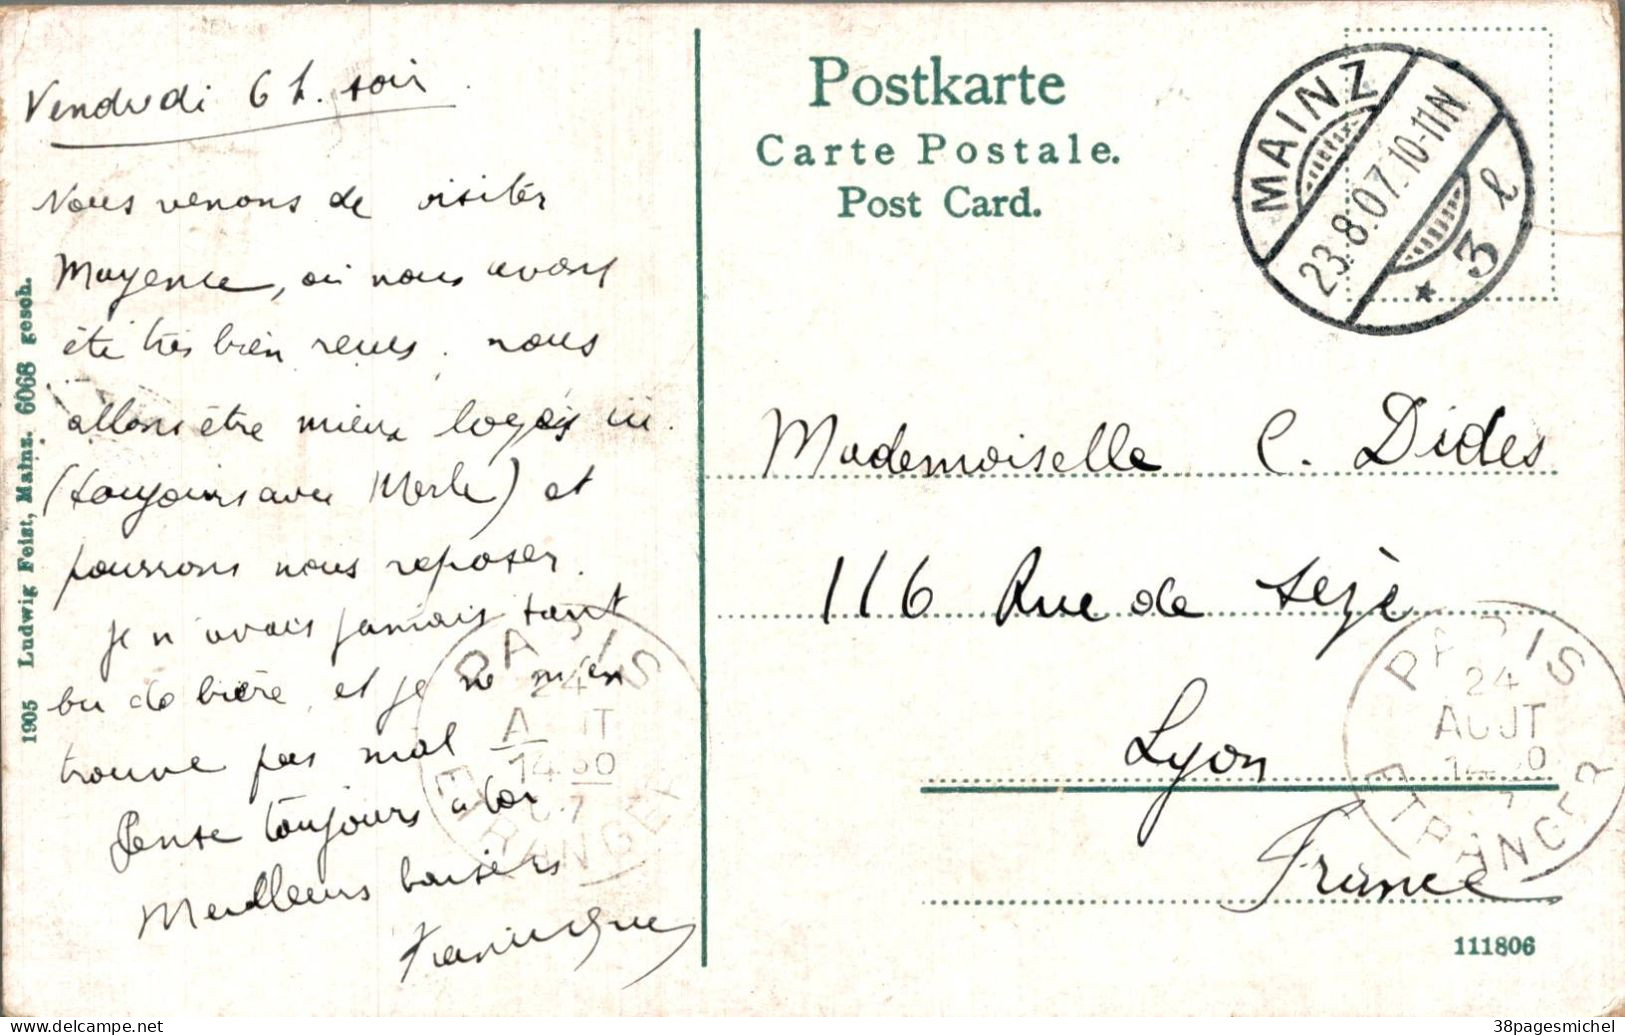 Vendredi 6 h. soir
Nous venons de visiter
Mayence, où nous avons
été très bien reçus. nous
allons être mieux logés ici
(toujours avec Merle) et
pourrons nous reposer.
Je n'avais jamais tant
bu de bière, et je ne m'en
trouve pas mal
Pense toujours à toi
Meilleurs baisers
1905 Ludwig Feist, Mainz. 6068 gesch.
Postkarte
Carte Postale.
Post Card.
MAINZ
23.8.07.10-11N
* 3 l
Mademoiselle C. Dides
116 Rue de Sezè
Lyon
France
PARIS
24
AOUT
14 30
07
ETRANGER
PARIS
24
AOUT
14 30
7
ETRANGER
111806
delcampe.net
38pagesmichel